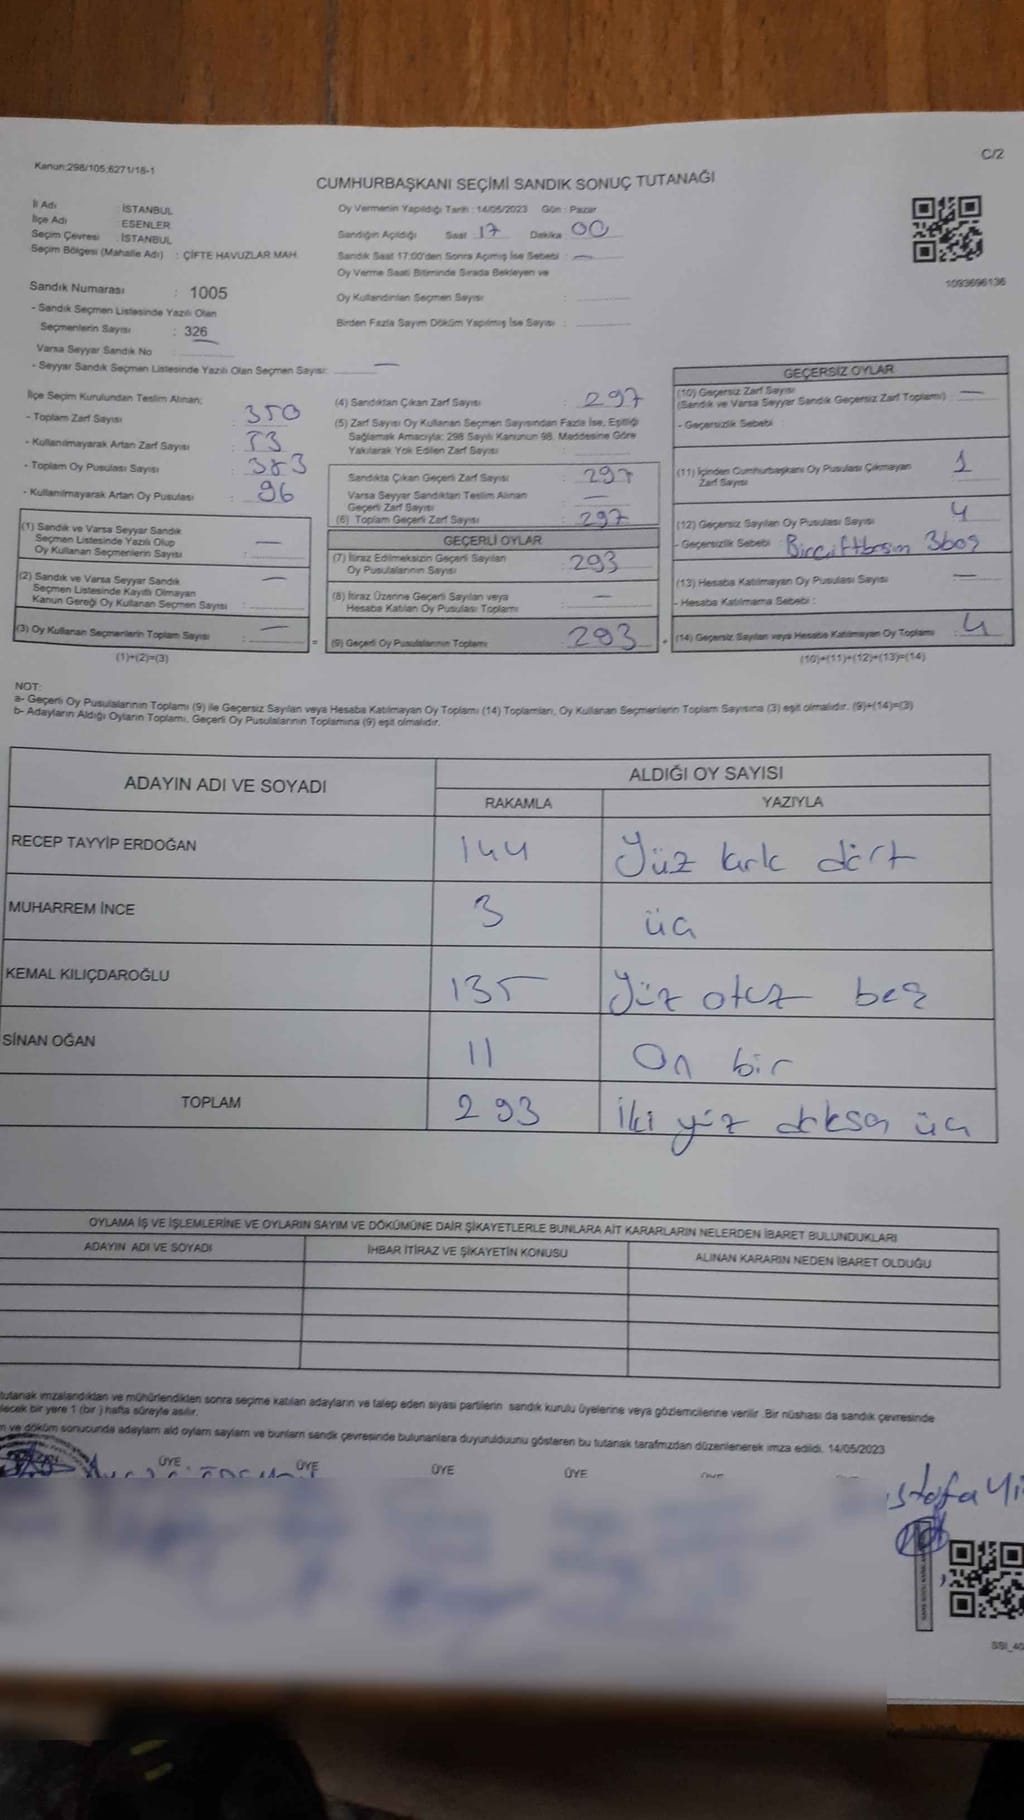 Kanun:298/105;6271/18-1
C/2
CUMHURBAŞKANI SEÇİMİ SANDIK SONUÇ TUTANAĞI
İl Adı : İSTANBUL
İlçe Adı : ESENLER
Seçim Çevresi : İSTANBUL
Seçim Bölgesi (Mahalle Adı) : ÇİFTE HAVUZLAR MAH.
Sandık Numarası : 1005
- Sandık Seçmen Listesinde Yazılı Olan
Seçmenlerin Sayısı : 326
Varsa Seyyar Sandık No :
- Seyyar Sandık Seçmen Listesinde Yazılı Olan Seçmen Sayısı: —
Oy Vermenin Yapıldığı Tarih : 14/05/2023 Gün : Pazar
Sandığın Açıldığı Saat 17 Dakika 00
Sandık Saat 17:00'den Sonra Açılmış İse Sebebi : —
Oy Verme Saati Bitiminde Sırada Bekleyen ve
Oy Kullandırılan Seçmen Sayısı :
Birden Fazla Sayım Döküm Yapılmış İse Sayısı :
1093696136
İlçe Seçim Kurulundan Teslim Alınan;
- Toplam Zarf Sayısı : 350
- Kullanılmayarak Artan Zarf Sayısı : 53
- Toplam Oy Pusulası Sayısı : 383
- Kullanılmayarak Artan Oy Pusulası : 96
(1) Sandık ve Varsa Seyyar Sandık
Seçmen Listesinde Yazılı Olup
Oy Kullanan Seçmenlerin Sayısı : —
(2) Sandık ve Varsa Seyyar Sandık
Seçmen Listesinde Kayıtlı Olmayan
Kanun Gereği Oy Kullanan Seçmen Sayısı : —
(3) Oy Kullanan Seçmenlerin Toplam Sayısı : —
(1)+(2)=(3)
(4) Sandıktan Çıkan Zarf Sayısı : 297
(5) Zarf Sayısı Oy Kullanan Seçmen Sayısından Fazla İse, Eşitliği
Sağlamak Amacıyla; 298 Sayılı Kanunun 98. Maddesine Göre
Yakılarak Yok Edilen Zarf Sayısı :
Sandıkta Çıkan Geçerli Zarf Sayısı : 297
Varsa Seyyar Sandıktan Teslim Alınan
Geçerli Zarf Sayısı : —
(6) Toplam Geçerli Zarf Sayısı : 297
GEÇERLİ OYLAR
(7) İtiraz Edilmeksizin Geçerli Sayılan
Oy Pusulalarının Sayısı : 293
(8) İtiraz Üzerine Geçerli Sayılan veya
Hesaba Katılan Oy Pusulası Toplamı : —
= (9) Geçerli Oy Pusulalarının Toplamı : 293
GEÇERSİZ OYLAR
(10) Geçersiz Zarf Sayısı
(Sandık ve Varsa Seyyar Sandık Geçersiz Zarf Toplamı) : —
- Geçersizlik Sebebi :
(11) İçinden Cumhurbaşkanı Oy Pusulası Çıkmayan
Zarf Sayısı : 1
(12) Geçersiz Sayılan Oy Pusulası Sayısı : 4
- Geçersizlik Sebebi : Bir çift basım 3 boş
(13) Hesaba Katılmayan Oy Pusulası Sayısı : —
- Hesaba Katılmama Sebebi :
+ (14) Geçersiz Sayılan veya Hesaba Katılmayan Oy Toplamı : 4
(10)+(11)+(12)+(13)=(14)
NOT:
a- Geçerli Oy Pusulalarının Toplamı (9) ile Geçersiz Sayılan veya Hesaba Katılmayan Oy Toplamı (14) Toplamları, Oy Kullanan Seçmenlerin Toplam Sayısına (3) eşit olmalıdır. (9)+(14)=(3)
b- Adayların Aldığı Oyların Toplamı, Geçerli Oy Pusulalarının Toplamına (9) eşit olmalıdır.
ADAYIN ADI VE SOYADI ALDIĞI OY SAYISI
RAKAMLA YAZIYLA
RECEP TAYYİP ERDOĞAN 144 Yüz kırk dört
MUHARREM İNCE 3 üç
KEMAL KILIÇDAROĞLU 135 Yüz otuz beş
SİNAN OĞAN 11 On bir
TOPLAM 293 İki yüz doksan üç
OYLAMA İŞ VE İŞLEMLERİNE VE OYLARIN SAYIM VE DÖKÜMÜNE DAİR ŞİKAYETLERLE BUNLARA AİT KARARLARIN NELERDEN İBARET BULUNDUKLARI
ADAYIN ADI VE SOYADI İHBAR İTİRAZ VE ŞİKAYETİN KONUSU ALINAN KARARIN NEDEN İBARET OLDUĞU
tutanak imzalandıktan ve mühürlendikten sonra seçime katılan adayların ve talep eden siyasi partilerin sandık kurulu üyelerine veya gözlemcilerine verilir. Bir nüshası da sandık çevresinde
lecek bir yere 1 (bir ) hafta süreyle asılır.
m ve döküm sonucunda adayların ald oyların sayların ve bunların sandk çevresinde bulunanlara duyurulduunu gösteren bu tutanak tarafmzdan düzenlenerek imza edildi. 14/05/2023
ÜYE ÜYE ÜYE ÜYE